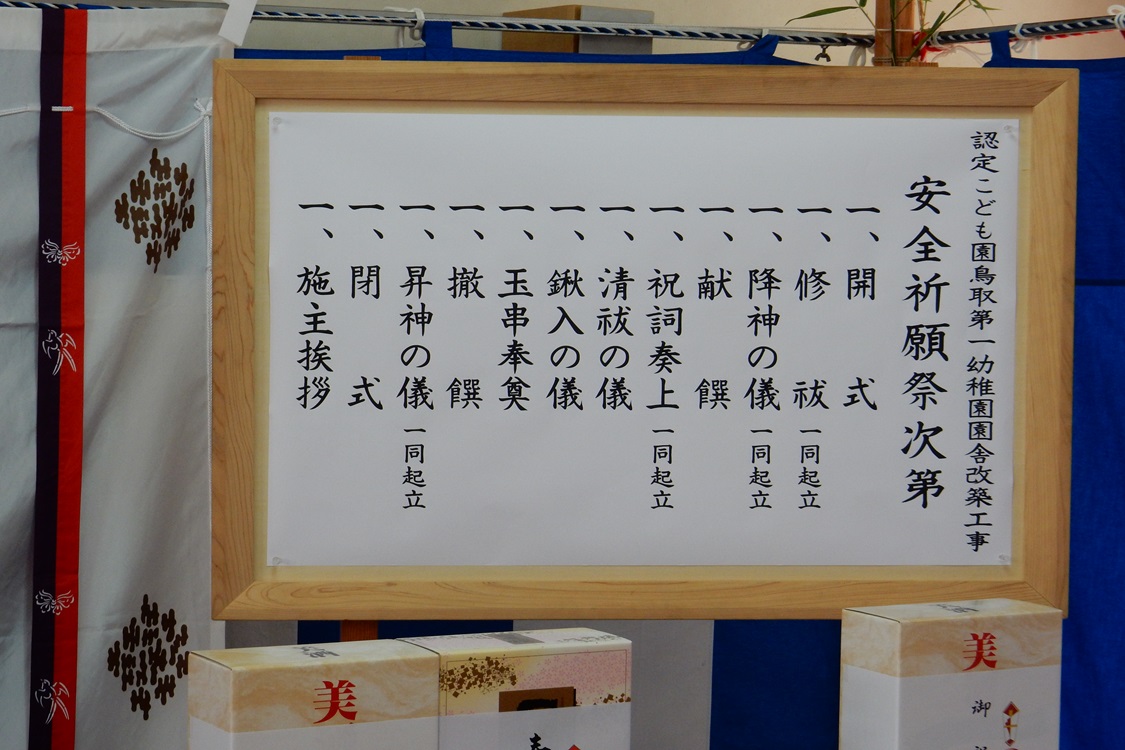 認定こども園鳥取第一幼稚園園舎改築工事
安全祈願祭次第
一、開式
一、修祓 一同起立
一、降神の儀 一同起立
一、献饌
一、祝詞奏上 一同起立
一、清祓の儀
一、鍬入の儀
一、玉串奉奠
一、撤饌
一、昇神の儀 一同起立
一、閉式
一、施主挨拶
美
美
御